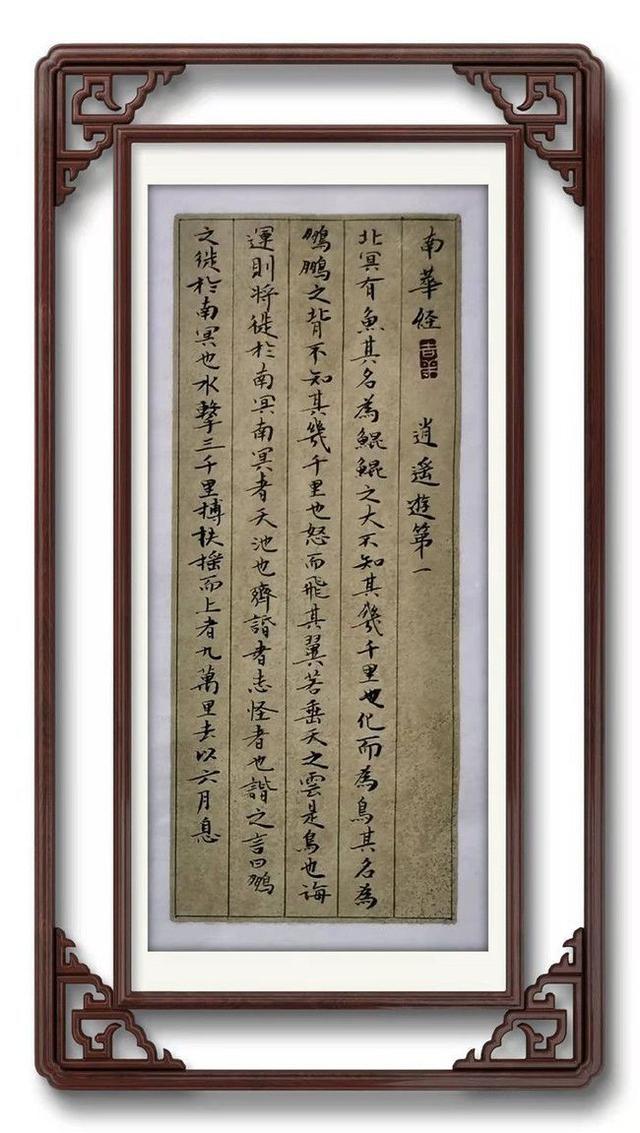 南華經 吉羊 逍遙遊第一
北冥有魚其名為鯤鯤之大不知其幾千里也化而為鳥其名為
鵬鵬之背不知其幾千里也怒而飛其翼若垂天之雲是鳥也海
運則將徙於南冥南冥者天池也齊諧者志怪者也諧之言曰鵬
之徙於南冥也水擊三千里摶扶搖而上者九萬里去以六月息